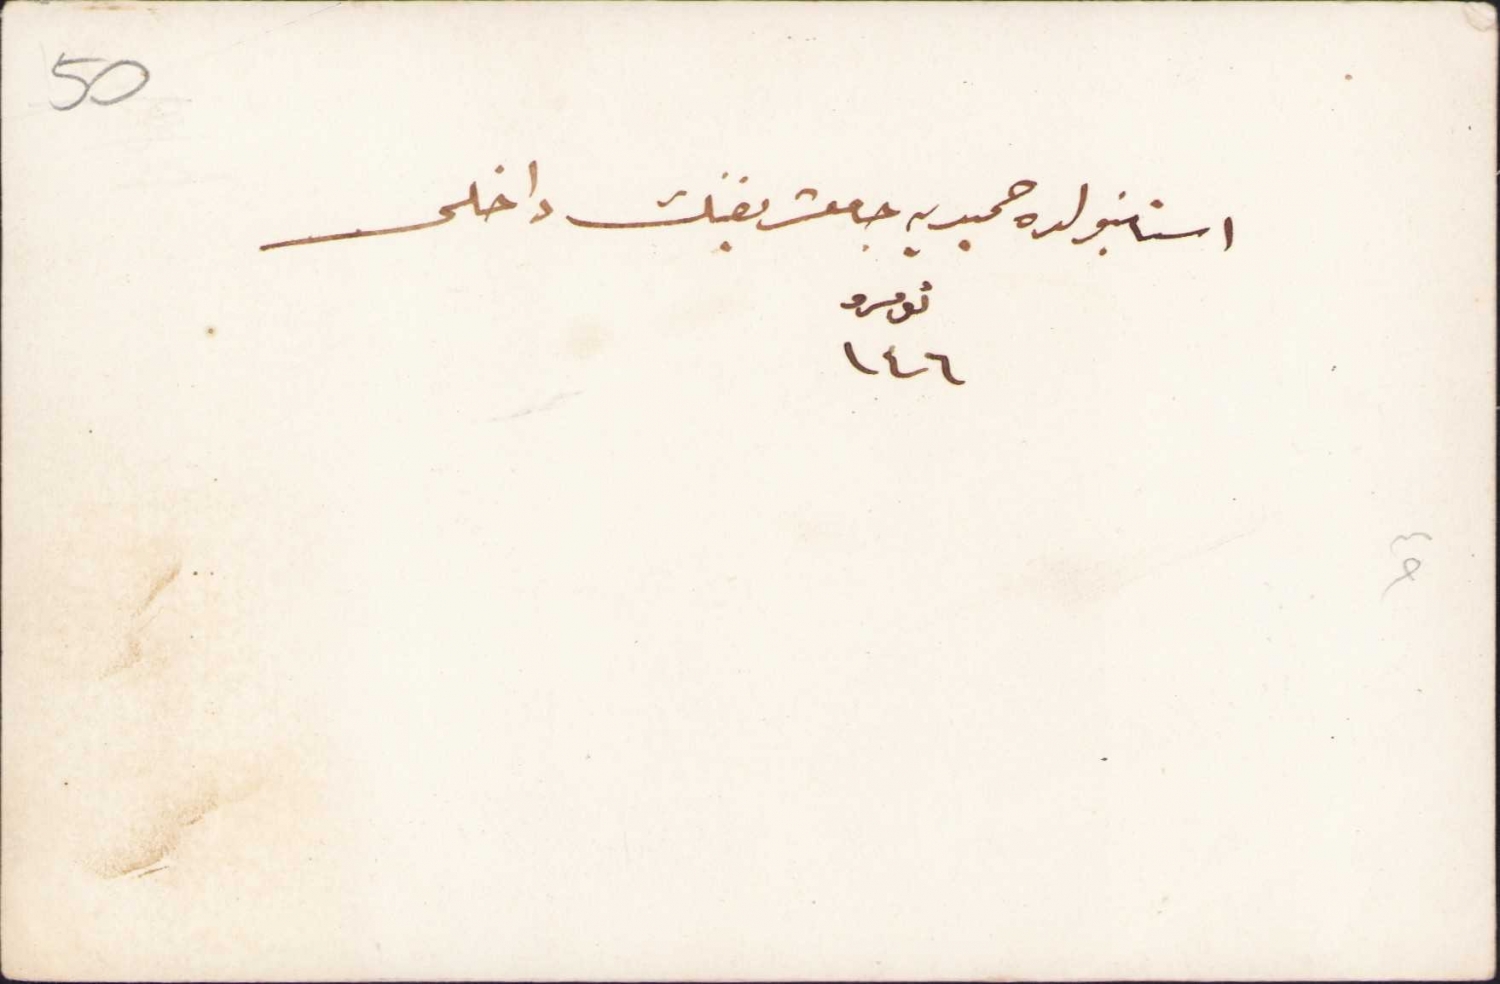 50
استانبولده حميديه جامع شريفنك داخلى
نومرو
١٤٦